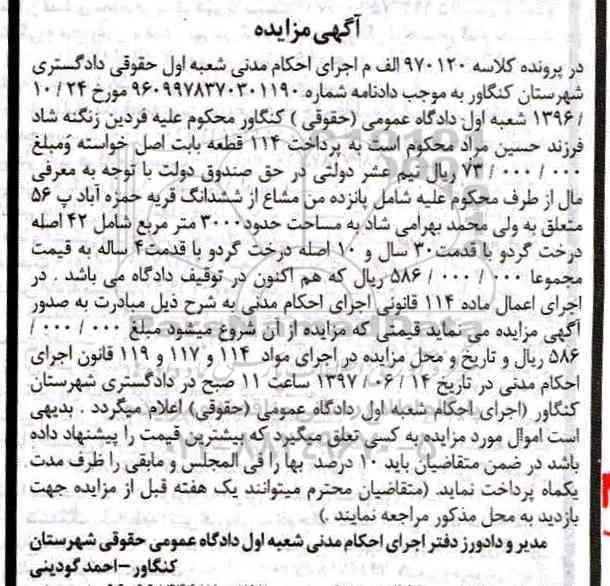 آگهی مزایده
در پرونده کلاسه ۹۷۰۱۲۰ الف م اجرای احکام مدنی شعبه اول حقوقی دادگستری
شهرستان کنگاور به موجب دادنامه شماره ۹۶۰۹۹۷۸۳۷۰۳۰۱۱۹۰ مورخ ۲۴ / ۱۰
/ ۱۳۹۶ شعبه اول دادگاه عمومی (حقوقی ) کنگاور محکوم علیه فردین زنگنه شاد
فرزند حسین مراد محکوم است به پرداخت ۱۱۴ قطعه بابت اصل خواسته ومبلغ
۰۰۰ / ۰۰۰ / ۷۳ ریال نیم عشر دولتی در حق صندوق دولت با توجه به معرفی
مال از طرف محکوم علیه شامل پانزده من مشاع از ششدانگ قریه حمزه آباد پ ۵۶
متعلق به ولی محمد بهرامی شاد به مساحت حدود۳۰۰۰ متر مربع شامل ۴۲ اصله
درخت گردو با قدمت۳۰ سال و ۱۰ اصله درخت گردو با قدمت۴ ساله به قیمت
مجموعا ۰۰۰ / ۰۰۰ / ۵۸۶ ریال که هم اکنون در توقیف دادگاه می باشد . در
اجرای اعمال ماده ۱۱۴ قانونی اجرای احکام مدنی به شرح ذیل مبادرت به صدور
آگهی مزایده می نماید قیمتی که مزایده از آن شروع میشود مبلغ ۰۰۰ / ۰۰۰ /
۵۸۶ ریال و تاریخ و محل مزایده در اجرای مواد ۱۱۴ و ۱۱۷ و ۱۱۹ قانون اجرای
احکام مدنی در تاریخ ۱۴ / ۰۶ / ۱۳۹۷ ساعت ۱۱ صبح در دادگستری شهرستان
کنگاور (اجرای احکام شعبه اول دادگاه عمومی (حقوقی) اعلام میگردد . بدیهی
است اموال مورد مزایده به کسی تعلق میگیرد که بیشترین قیمت را پیشنهاد داده
باشد در ضمن متقاضیان باید ۱۰ درصد بها را فی المجلس و مابقی را ظرف مدت
یکماه پرداخت نماید. (متقاضیان محترم میتوانند یک هفته قبل از مزایده جهت
بازدید به محل مذکور مراجعه نمایند .)
مدیر و دادورز دفتر اجرای احکام مدنی شعبه اول دادگاه عمومی حقوقی شهرستان
کنگاور –احمد گودینی